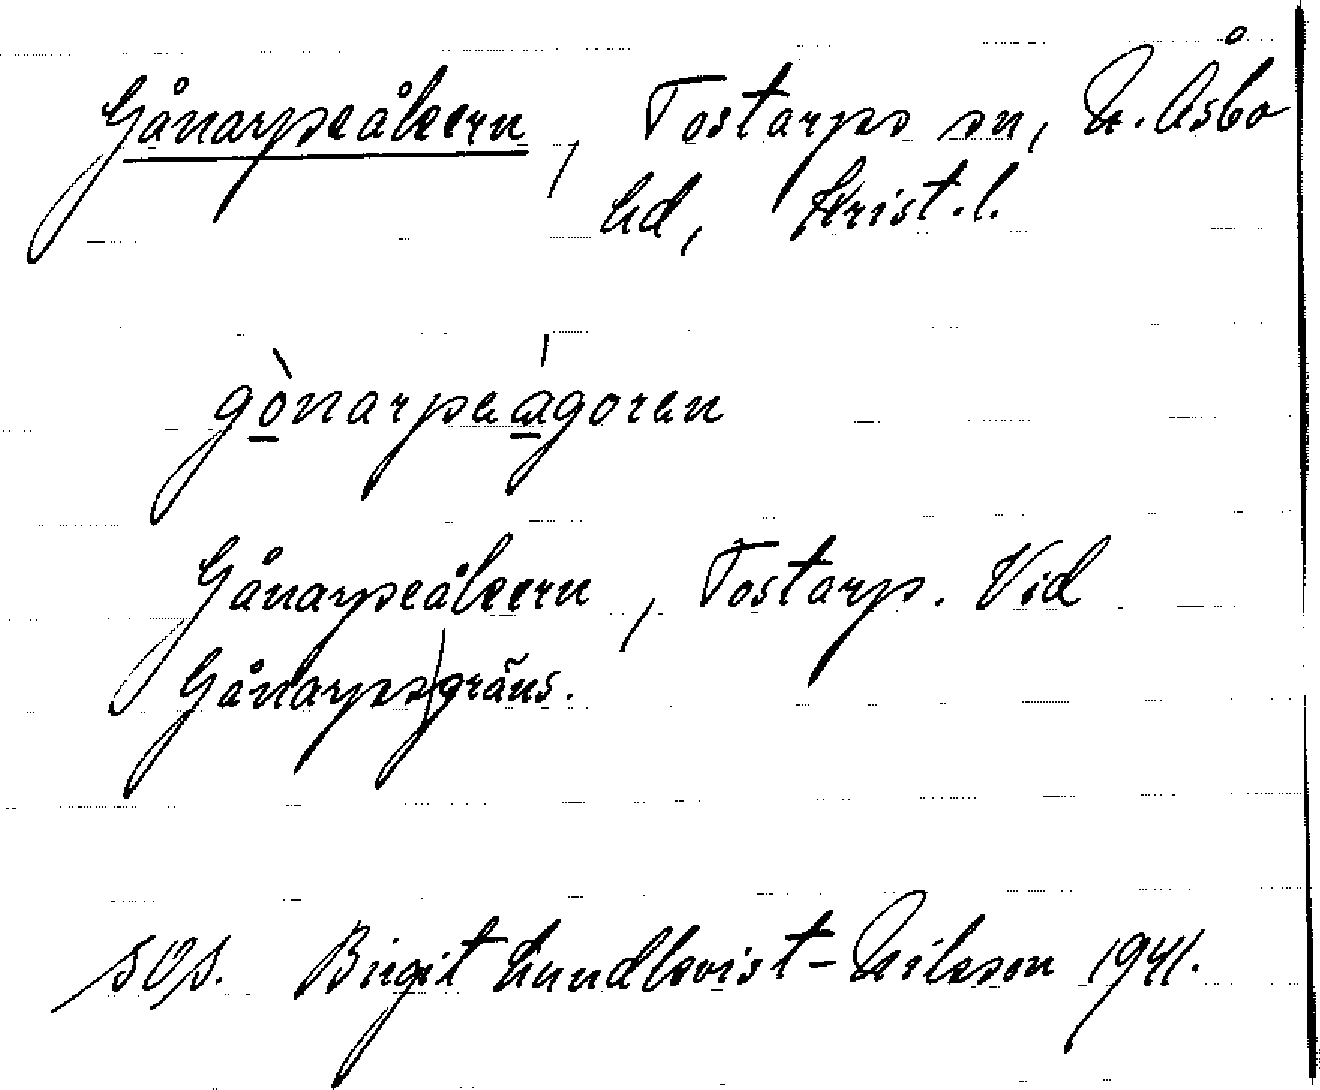 Gånarpeåkern, Tostarps sn, N. Åsbo
hd, Krist. l.
gònarpeágoren
Gånarpeåkern, Tostarp. Vid
Gånarpsgräns.
Birgit Lundkvist-Nilsson 1941.